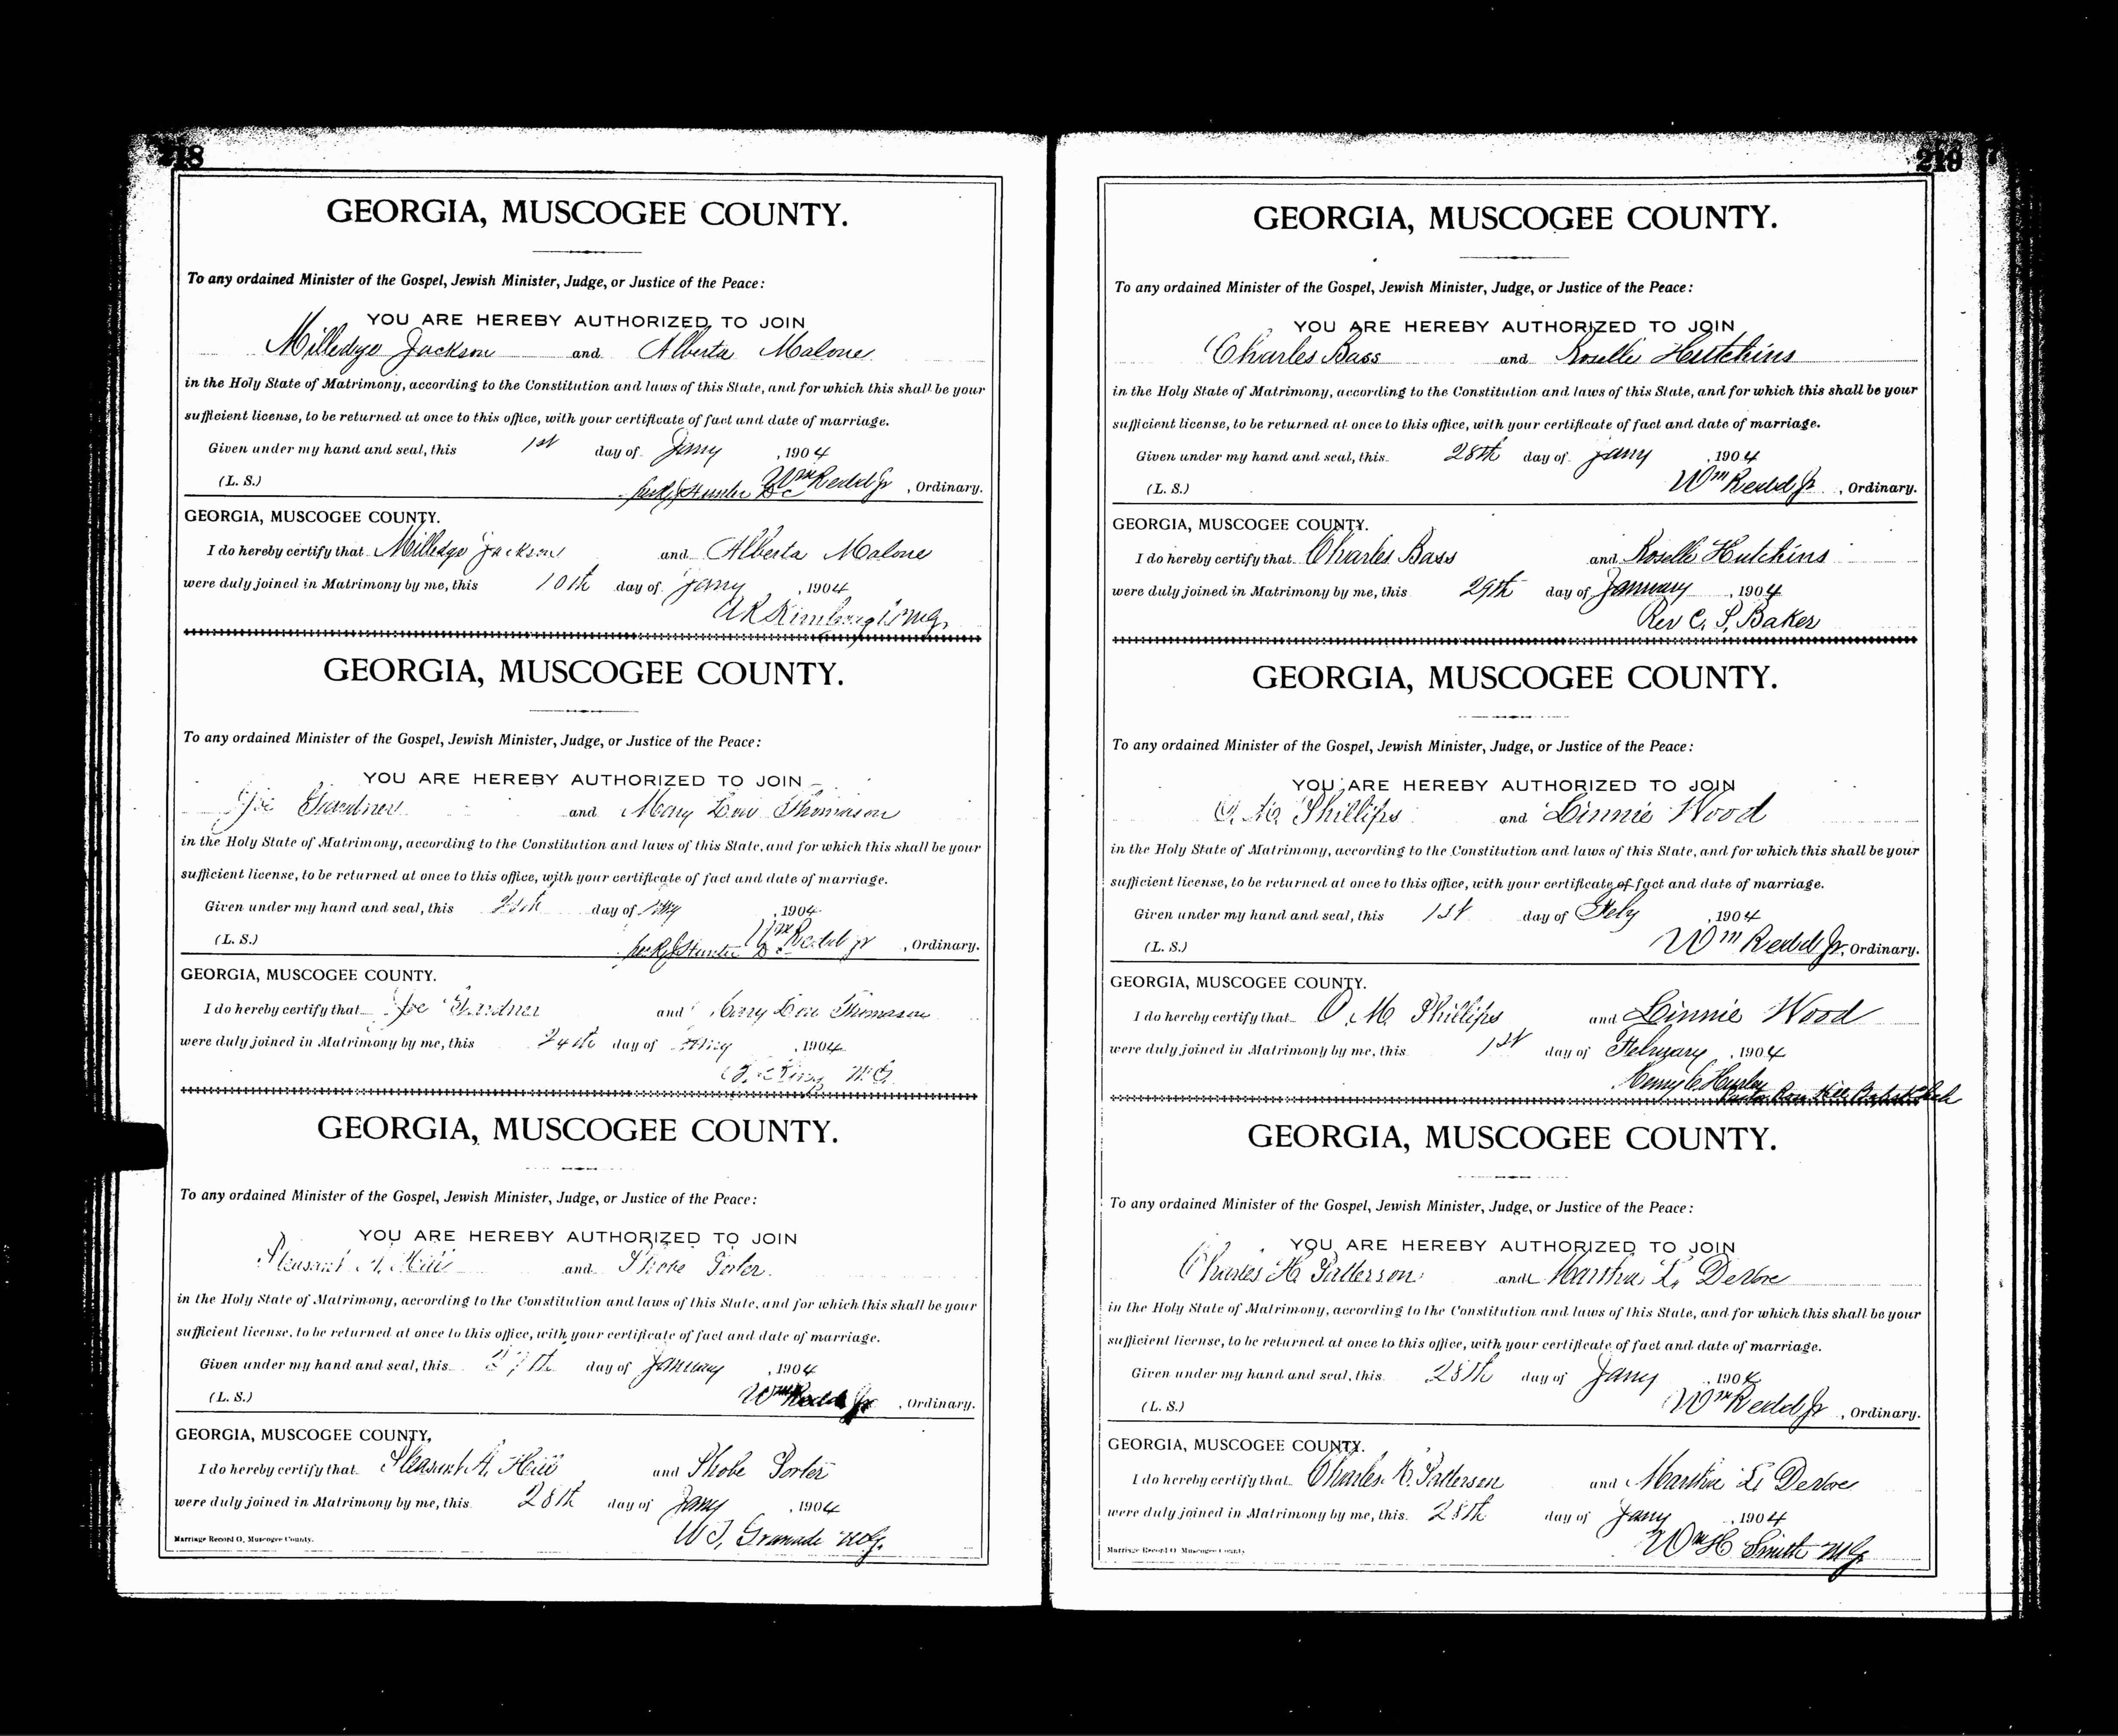 218
GEORGIA, MUSCOGEE COUNTY.
To any ordained Minister of the Gospel, Jewish Minister, Judge, or Justice of the Peace:
YOU ARE HEREBY AUTHORIZED TO JOIN
Milledge Jackson and Alberta Malone
in the Holy State of Matrimony, according to the Constitution and laws of this State, and for which this shall be your
sufficient license, to be returned at once to this office, with your certificate of fact and date of marriage.
Given under my hand and seal, this 1st day of Jany , 1904
(L. S.) Wm Redd Jr , Ordinary.
Hunter DC
GEORGIA, MUSCOGEE COUNTY.
I do hereby certify that Milledge Jackson and Alberta Malone
were duly joined in Matrimony by me, this 10th day of Jany , 1904
GEORGIA, MUSCOGEE COUNTY.
To any ordained Minister of the Gospel, Jewish Minister, Judge, or Justice of the Peace:
YOU ARE HEREBY AUTHORIZED TO JOIN
Joe Gardner and Mary Lou Thomason
in the Holy State of Matrimony, according to the Constitution and laws of this State, and for which this shall be your
sufficient license, to be returned at once to this office, with your certificate of fact and date of marriage.
Given under my hand and seal, this day of Jany , 1904
(L. S.) Wm Redd Jr , Ordinary.
Hunter DC
GEORGIA, MUSCOGEE COUNTY.
I do hereby certify that Joe Gardner and Mary Lou Thomason
were duly joined in Matrimony by me, this 24th day of Jany , 1904
M.G.
GEORGIA, MUSCOGEE COUNTY.
To any ordained Minister of the Gospel, Jewish Minister, Judge, or Justice of the Peace:
YOU ARE HEREBY AUTHORIZED TO JOIN
Pleasant A. Hill and Phobe Porter
in the Holy State of Matrimony, according to the Constitution and laws of this State, and for which this shall be your
sufficient license, to be returned at once to this office, with your certificate of fact and date of marriage.
Given under my hand and seal, this 27th day of January , 1904
(L. S.) Wm Redd Jr , Ordinary.
GEORGIA, MUSCOGEE COUNTY,
I do hereby certify that Pleasant A. Hill and Phobe Porter
were duly joined in Matrimony by me, this 28th day of Jany , 1904
W J. Granade M.G.
Marriage Record O, Muscogee County.
219
GEORGIA, MUSCOGEE COUNTY.
To any ordained Minister of the Gospel, Jewish Minister, Judge, or Justice of the Peace:
YOU ARE HEREBY AUTHORIZED TO JOIN
Charles Bass and Roselle Hutchins
in the Holy State of Matrimony, according to the Constitution and laws of this State, and for which this shall be your
sufficient license, to be returned at once to this office, with your certificate of fact and date of marriage.
Given under my hand and seal, this 28th day of Jany , 1904
(L. S.) Wm Redd Jr , Ordinary.
GEORGIA, MUSCOGEE COUNTY.
I do hereby certify that Charles Bass and Roselle Hutchins
were duly joined in Matrimony by me, this 29th day of January , 1904
Rev C. S. Baker
GEORGIA, MUSCOGEE COUNTY.
To any ordained Minister of the Gospel, Jewish Minister, Judge, or Justice of the Peace:
YOU ARE HEREBY AUTHORIZED TO JOIN
O. M. Phillips and Linnie Wood
in the Holy State of Matrimony, according to the Constitution and laws of this State, and for which this shall be your
sufficient license, to be returned at once to this office, with your certificate of fact and date of marriage.
Given under my hand and seal, this 1st day of Feby , 1904
(L. S.) Wm Redd Jr , Ordinary.
GEORGIA, MUSCOGEE COUNTY.
I do hereby certify that O. M. Phillips and Linnie Wood
were duly joined in Matrimony by me, this 1st day of February , 1904
Henry C. Hurley
Pastor Rose Hill Baptist Chch
GEORGIA, MUSCOGEE COUNTY.
To any ordained Minister of the Gospel, Jewish Minister, Judge, or Justice of the Peace:
YOU ARE HEREBY AUTHORIZED TO JOIN
Charles H. Patterson and Martha L. DeVore
in the Holy State of Matrimony, according to the Constitution and laws of this State, and for which this shall be your
sufficient license, to be returned at once to this office, with your certificate of fact and date of marriage.
Given under my hand and seal, this 28th day of Jany , 1904
(L. S.) Wm Redd Jr , Ordinary.
GEORGIA, MUSCOGEE COUNTY.
I do hereby certify that Charles H. Patterson and Martha L. DeVore
were duly joined in Matrimony by me, this 28th day of Jany , 1904
Wm H Smith MG
Marriage Record O Muscogee County.